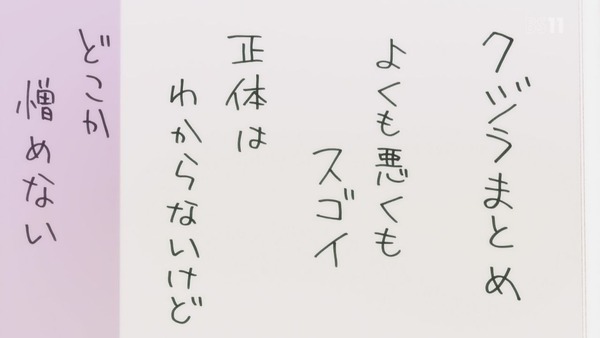 クジラまとめ
よくも悪くも
スゴイ
正体は
わからないけど
どこか
憎めない
11